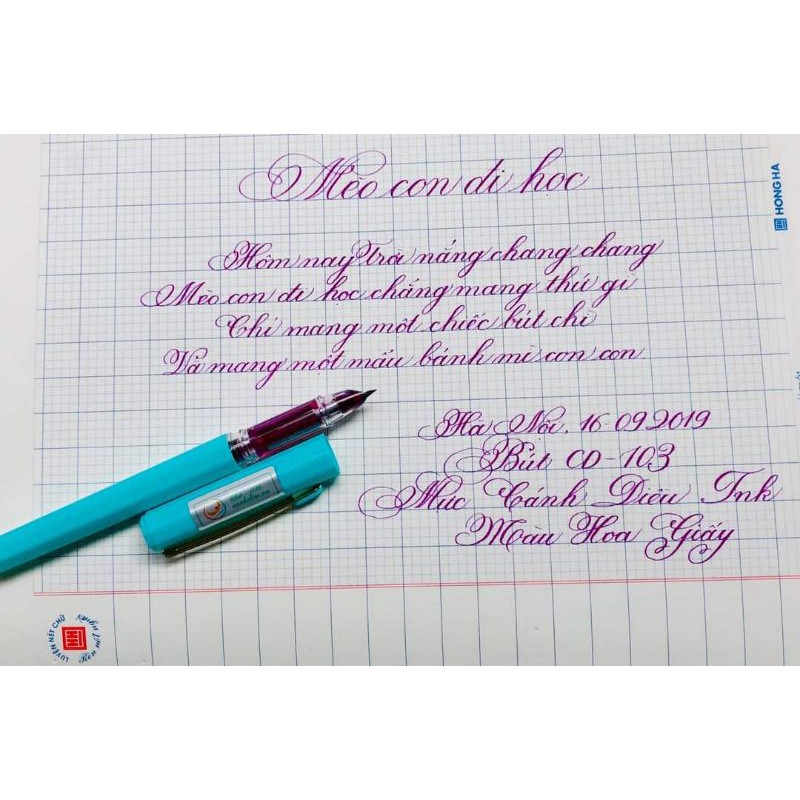 Mèo con đi học
HONG HA
Hôm nay Trời nắng chang chang
Mèo con đi học chẳng mang thứ gì
Chỉ mang một chiếc bút chì
Và mang một mẩu bánh mì con con
Hà Nội, 16-09-2019
Bút CD-103
Mực Cánh Diều Ink
Màu Hoa Giấy
LUYỆN NÉT CHỮ
Rèn nết người